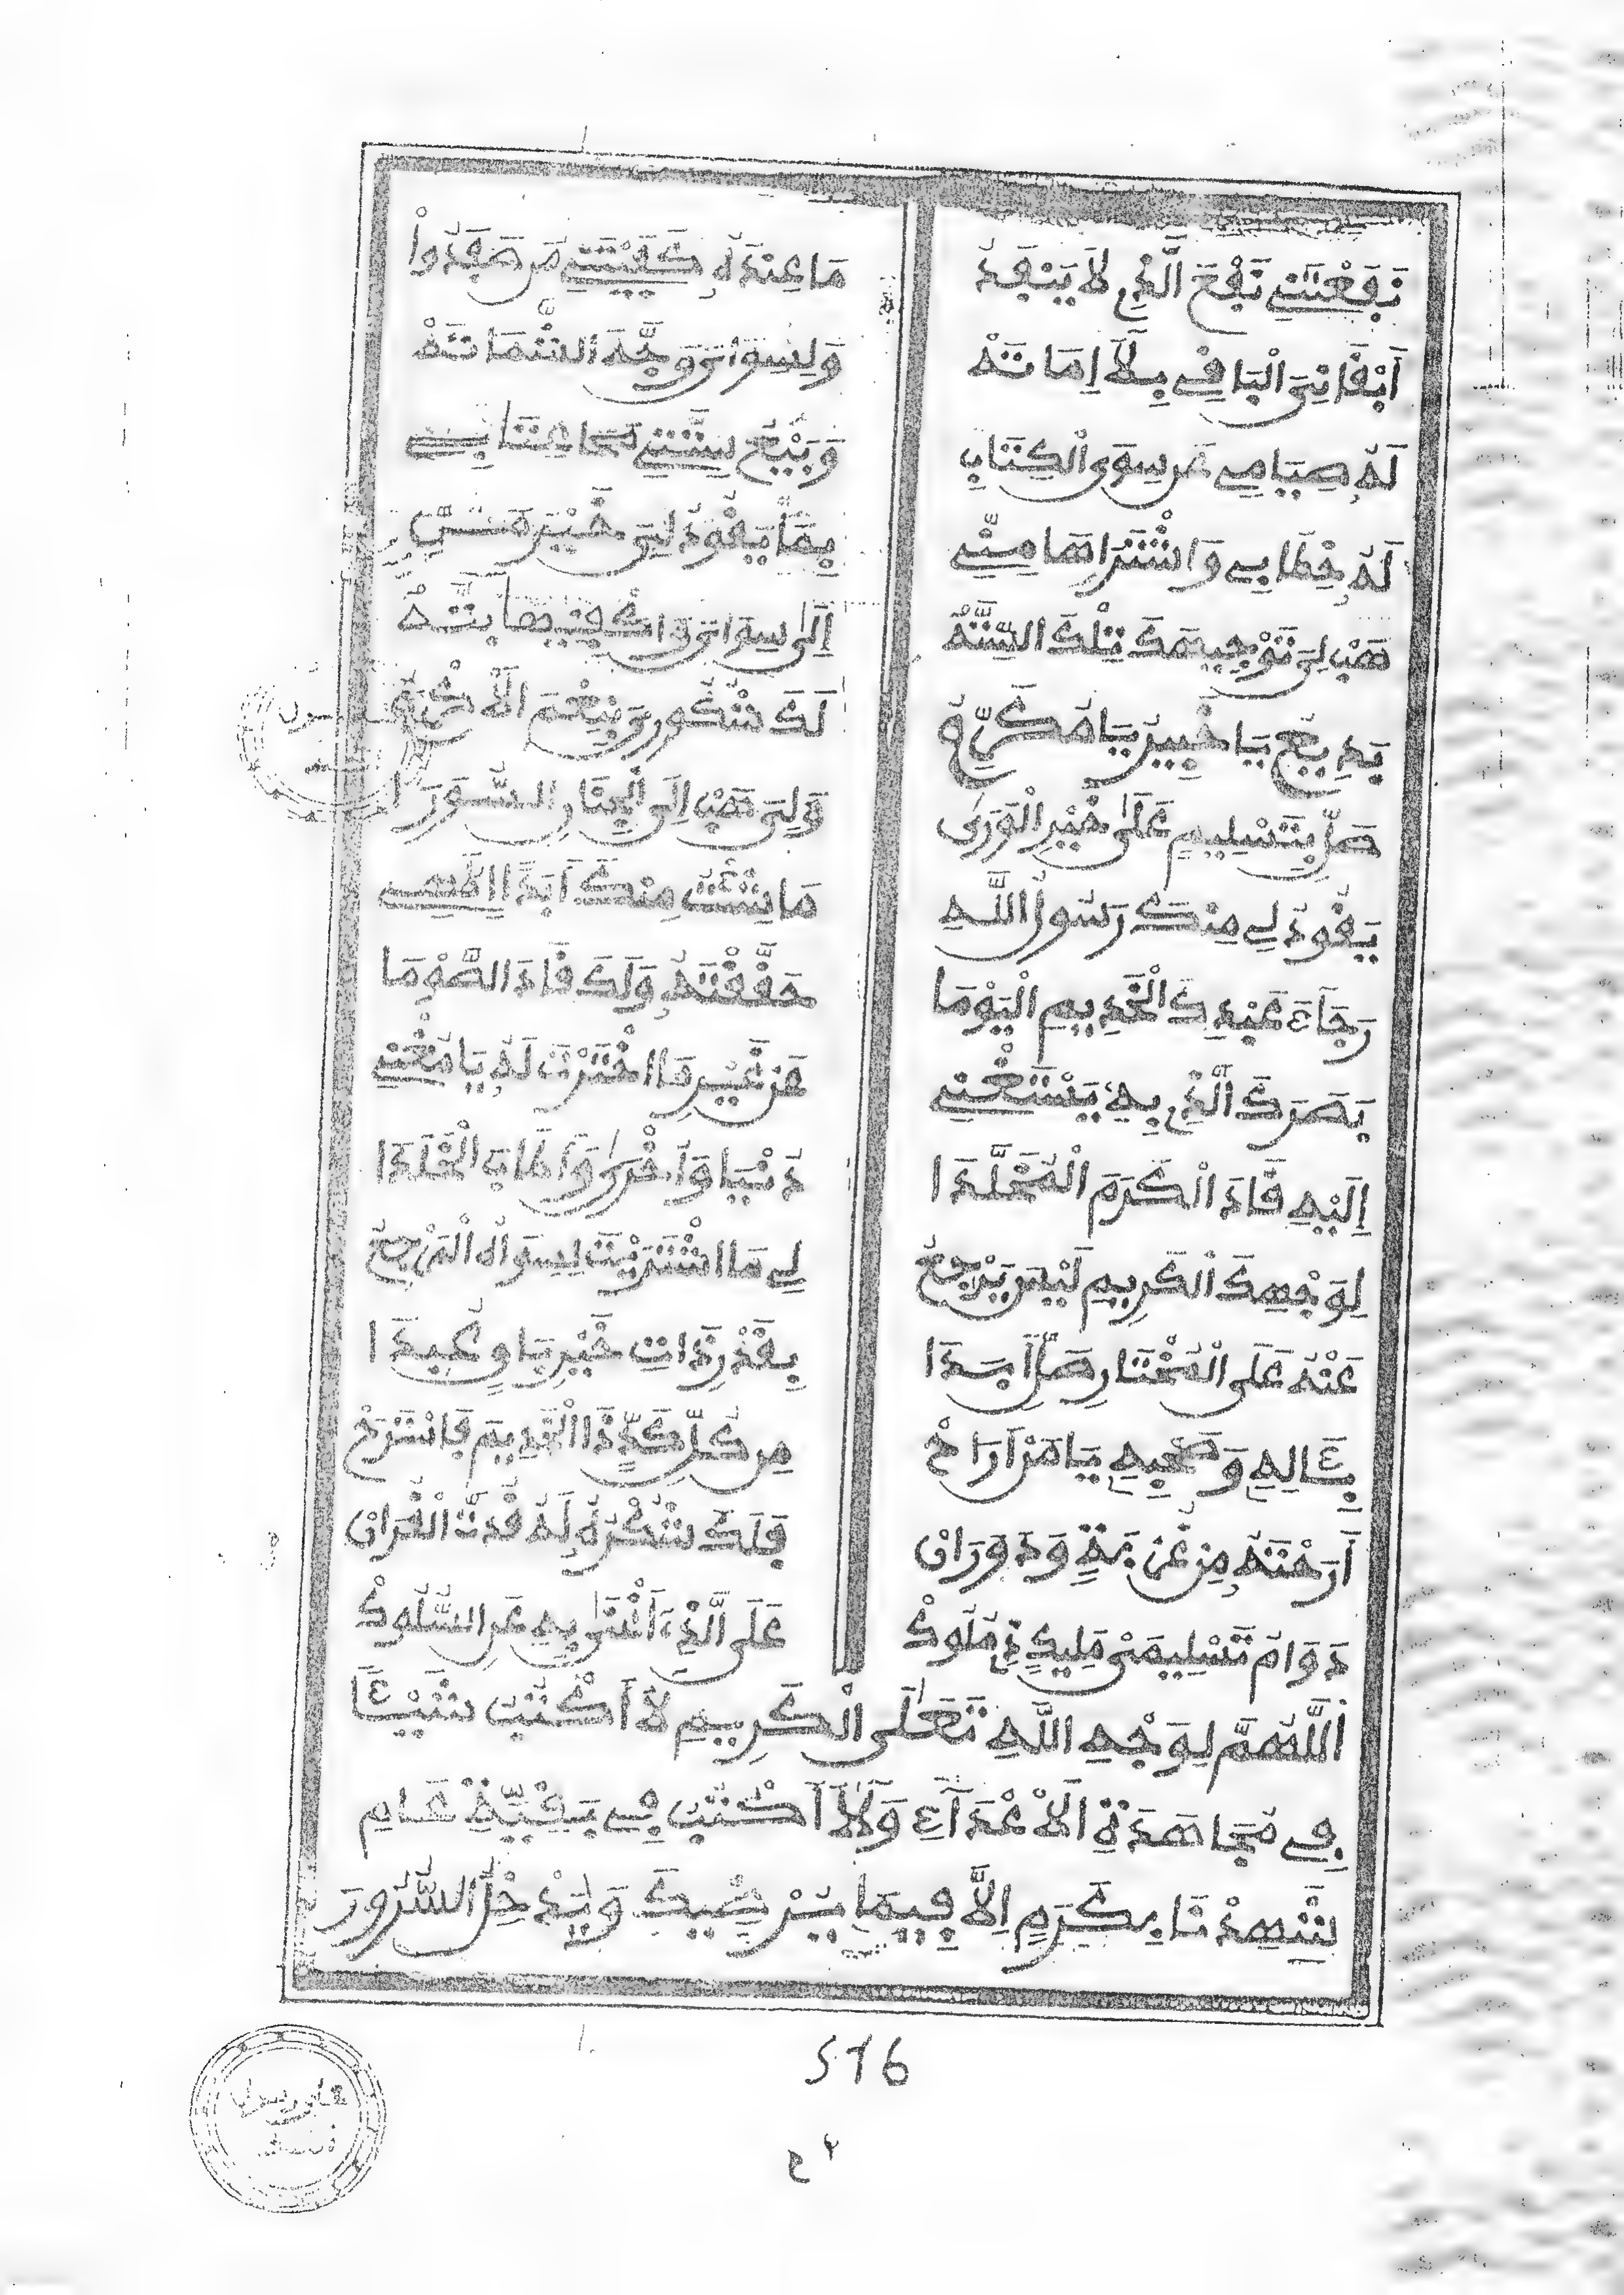 نَفَعْتَنِي نَفْعَ الَّذِي لَا يَنْفَدُ مَا عِنْدَهُ كَفَيْتَنِي مَن حَفَدُواْ
أَبْقَانِيَ الْبَاقِي بِلَا إِمَاتَهْ وَلِسِوَايَ وَجَّهَ الشَّمَاتَهْ
لَهُ صِيَامِي عَن سِوَى الْكِتَابِ وَبَيْعُ سِتَّتِي مَحَا عِتَابِي
لَهُ خِطَابِي وَاشْتَرَاهَا مِنِّي بِمَا يَقُودُ لِيَ خَيْرَ مَنِّ
هَبْ لِيَ تَوْجِيهَكَ تِلْكَ السِّتَّهْ إِلَى سِوَايَ وَاكْفِنِيهَا بَتَّهْ
بَدِيعُ يَا خَبِيرُ يَا مُكَرِّمُ لَكَ شُكُورِي وَبِيَ نِعْمَ الْأَكْرَمُ
صَلِّ بِتَسْلِيمٍ عَلَى خَيْرِ الْوَرَى وَلِيَ هَبْ إِلَى الْجِنَانِ السُّوَرَا
يَقُودُ لِي مِنْكَ رَسُولُ اللَّهِ مَا شِئْتُ مِنْكَ أَبَدًا إِلَهِي
رَجَاءَ عَبْدِكَ الْخَدِيمِ الْيَوْمَا حَقَّقْتَهُ وَلَكَ قَادَ الصَّوْمَا
بَصَرَكَ الَّذِي بِهِ يَسْتَغْنِي عَن غَيْرِ مَا اخْتَرْتَ لَهُ يَا مُغْنِي
إِلَيْهِ قَادَ الْكَرَمَ الْمُخَلَّدَا دُنْيَا وَأُخْرَى وَأَطَابَ الْخَلَدَا
لِوَجْهِكَ الْكَرِيمِ لَيْسَ يَرْجِعُ لِي مَا اشْتَرَيْتَ لِسِوَاهُ الْمَرْجِعُ
عَنْهُ عَلَى الْمُخْتَارِ صَلِّ أَبَدَا بِقَدْرِ ذَاتِ خَيْرِ
بِئَالِهِ وَصَحْبِهِ يَا مَنْ أَرَاحْ مِن كُلِّ كَدٍّ ذَا الْخَدِيمَ فَانْشَرَحْ
أَرَحْتَهُ مِن وَدَوَرَانْ فَلَكَ شُكْرُهُ لَهُ قُدتَّ الْقُرَانْ
دَوَامُ تَسْلِيمَيْ مَلِيكٍ ذِي مُلُوكْ عَلَى الَّذِي أَثْنَى بِهِ عَنِ السُّلُوكْ
اللَّهُمَّ لِوَجْهِ اللَّهِ تَعَلَى الْكَرِيمِ لَا أَكْتُبُ شَيْئًا
فِي مُجَاهَدَةِ الْأَعْدَاءِ وَلَا أَكْتُبُ فِي بَقِيَّةِ عَامِ
شَهِدْنَا بِكَرَمٍ إِلَّا فِيمَا يُرْضِيكَ وَيُدْخِلُ السُّرُورَ
516